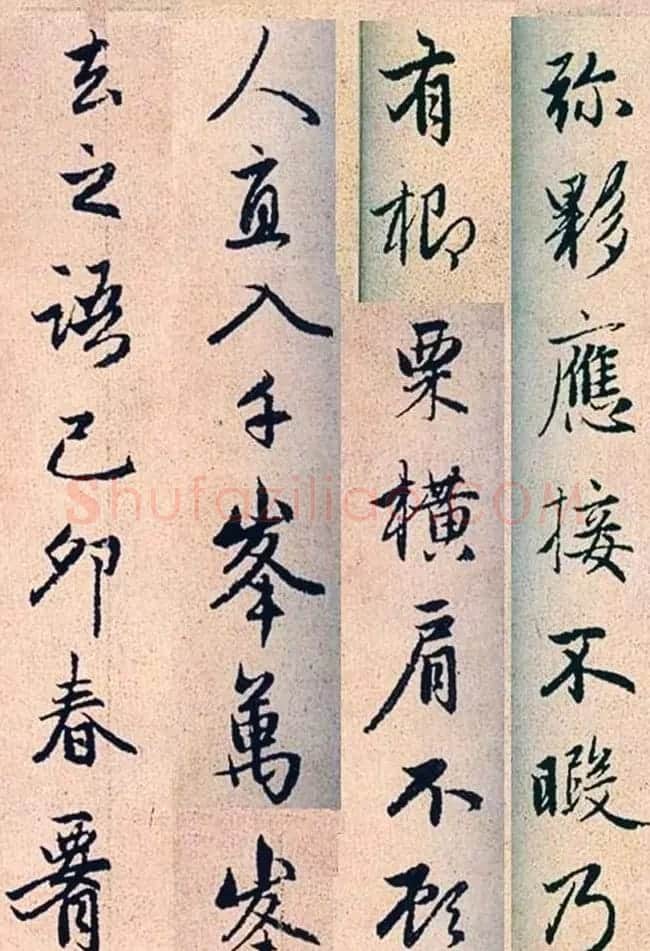 弥夥應接不暇乃
有楖栗橫肩不顧
人直入千峯萬峯
去之語己卯春
Shufaziliao.com